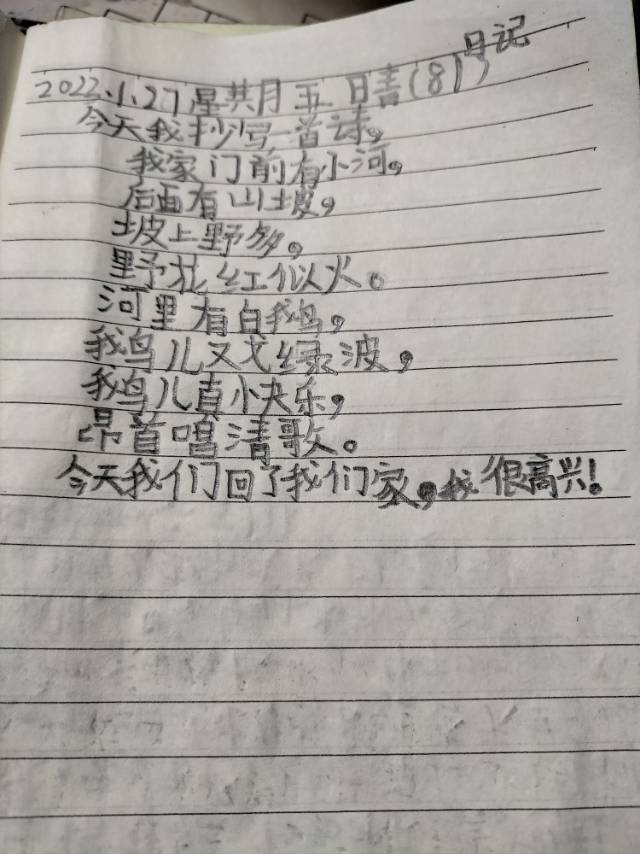 日记
2022.1.27 星其月五 日青(81)
今天我抄写一首诗，
我家门前有小河，
后面有山坡，
坡上野多。
野花红似火。
河里有白鹅，
鹅儿又戈绿波，
鹅儿真小夬乐，
昂首唱清歌。
今天我们回了我们家，我很高兴！